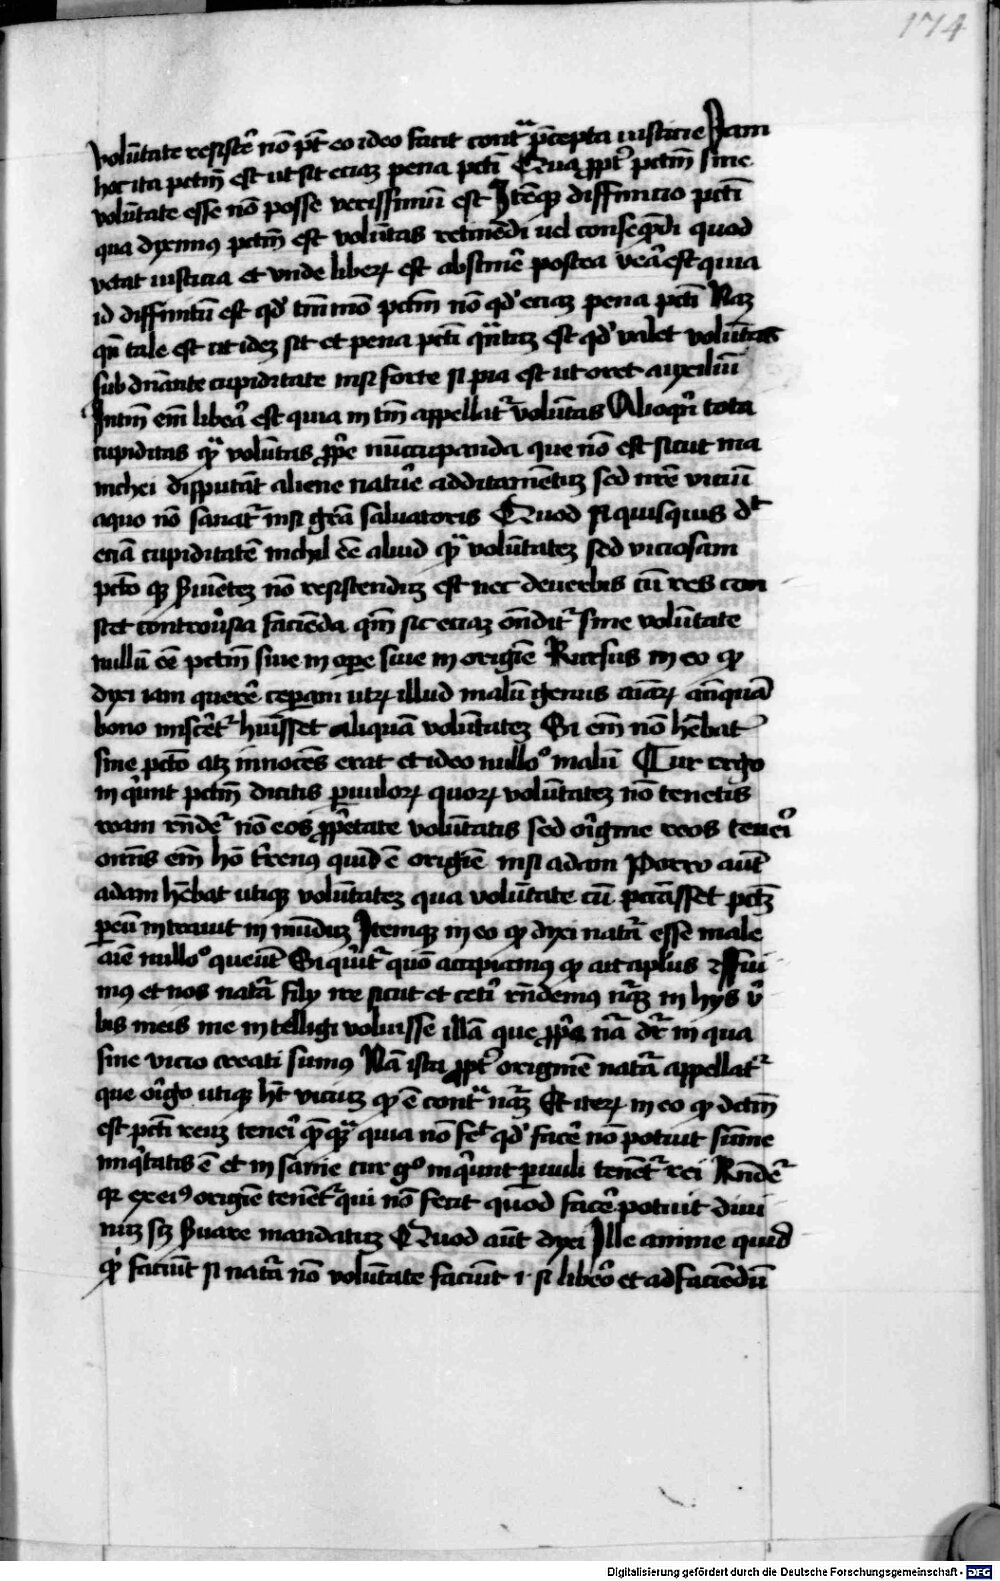 174
volūtate resistē nō pōt eo ideo facit contᵃ p̄cepta iusticie Jam
hoc ita pctm̄ est ut sit eciaꝫ pena pcti Quaꝓpt' pctm̄ sine
volūtate esse nō posse verissimū est Itēqꝫ diffinicio pcti
qua diximꝰ pctm̄ est volūtas retinēdi uel conseq̄ndi quod
vetat iusticia et vnde liberꝝ est abstinē̄ postea verā est quia
id diffinitū est qd' tm̄mō pctm̄ nō qd' eciaꝫ pena pcti Naꝫ
qn̄ tale est ut ideꝫ sit et pena pcti qᵃntuꝫ est qd' valet volūtas
sub dn̄ante cupiditate nisi forte si pia est ut oret auxiliū
Intm̄ em̄ liberᵃ est quia in tm̄ appellatᷣ volūtas Alioqn̄ tota
cupiditas qᵃ volūtas ꝓp̄e nūccupanda que nō est sicut ma
nichei disputāt aliene natur̄e additamētuꝫ sed nr̄e viciū
aquo nō sanatᷣ nisi grā saluatoris Quod si quisquis dᵗ
eciā cupiditatē nichil eē aliud qᵃ volūtateꝫ sed viciosam
pctō qꝫ ẜuiēteꝫ nō resistenduꝫ est nec deuerbis cū res con
stet controuᷣsia faciēda qm̄ sic eciaꝫ ōnditᷣ sine volūtate
nullū eē pctm̄ siue in ope siue in origīe Rursus in eo ꝙ
dixi iam querē ceperam utꝝ illud malū genus aīaꝝ anteqᵃ
bono miscētᷣ huīsset aliquā volūtateꝫ Si em̄ nō hēbat
sine pctō atꝫ innocēs erat et ideo nullo° malū Cur ergo
inqᷣunt pctm̄ dicitis p̱uuloꝝ quoꝝ volūtateꝫ nō tenetis
ream rn̄dē̄ᷣ nō eos ꝓp̄etate volūtatis sed oᷣigine reos teneri
om̄s em̄ hō t'renꝰ quid ē origīe nisi adam Porro aūt
adam hēbat utiqꝫ volūtateꝫ qua volūtate cū peccasset pctꝫ
p̱eū intrauit in mūduꝫ Itemqꝫ in eo ꝙ dixi natᵃ esse male
aīe nullo° queūt Si qᷣritᷣ quō accipiamꝰ ꝙ ait aplus ⁊ Fui
mꝰ et nos natᵃ filij ire sicut et ceteᷣi rn̄demꝰ natᵃꝫ in hys vᷣ
bis meis me intelligi voluisse illā que ꝓp̄a nā dᷣr in qua
sine vicio creati sumꝰ Nā ista ꝓpt' originē natᵃ appellatᷣ
que oᷣigo utiqꝫ hᷣt viciuꝫ ꝙ ē contᵃ natᵃꝫ Et iteꝝ in eo ꝙ dctm̄
est pcti reuꝫ teneri q̄mqᵃ quia nō fecᷣt qd' facē̄ nō potuit sūme
iniqᷣtatis ē et in sanīe cur g° inqᷣunt p̱uuli tenētᷣ rei Rn̄dētᷣ
qꝛ ex eiꝰ origīe tenētᷣ qui nō fecit quod facē̄ potuit diui
nuꝫ scꝫ ẜuare mandatuꝫ Quod aūt dixi Ille anime quid
qᷣd faciūt si natᵃ nō volūtate faciūt i· si liberᵒ et ad faciēdū
Digitalisierung gefördert durch die Deutsche Forschungsgemeinschaft - DFG